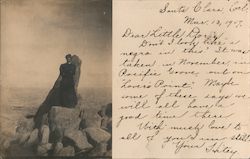 Santa Clara Cal.
Mar. 13, 1907.
Dear Little
Don't I look like a
negra in this? It was
taken in November, in
Pacific Grove, out on
Lovers Point. Maybe
one of these days we
will all have a
good time there
With much love to
all of you, I'm still
Your Sister